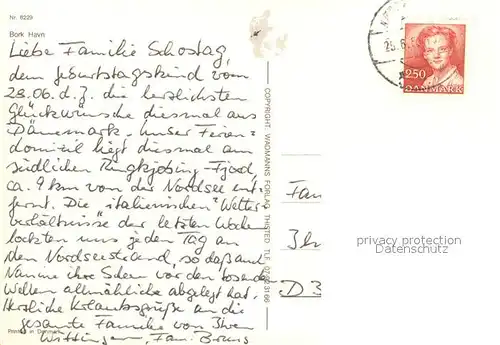 Nr. 6229
Bork Havn
Liebe Familie Schostag,
dem Geburtstagskind vom
28.06. d.J. die herzlichsten
Glückwünsche diesmal aus
Dänemark. Unser Ferien=
domizil liegt diesmal am
südlichen Ringkjøbing-Fjord,
ca. 9 km von der Nordsee ent-
fernt. Die "italienischen" Wetter-
verhältnisse der letzten Wochen
lockten uns jeden Tag an
den Nordseestrand, so daß auch
Nanine ihre Scheu vor den tosenden
Wellen allmähliche abgelegt hat.
Herzliche Urlaubsgrüße an die
gesamte Familie von Ihren
Fam. Bruns
Printed in Denmark
COPYRIGHT WADMANNS FORLAG, THISTED TLF. 07 92 31 66
25.6.8
2.50
DANMARK
Fam
Ih
D 3
privacy protection
Datenschutz